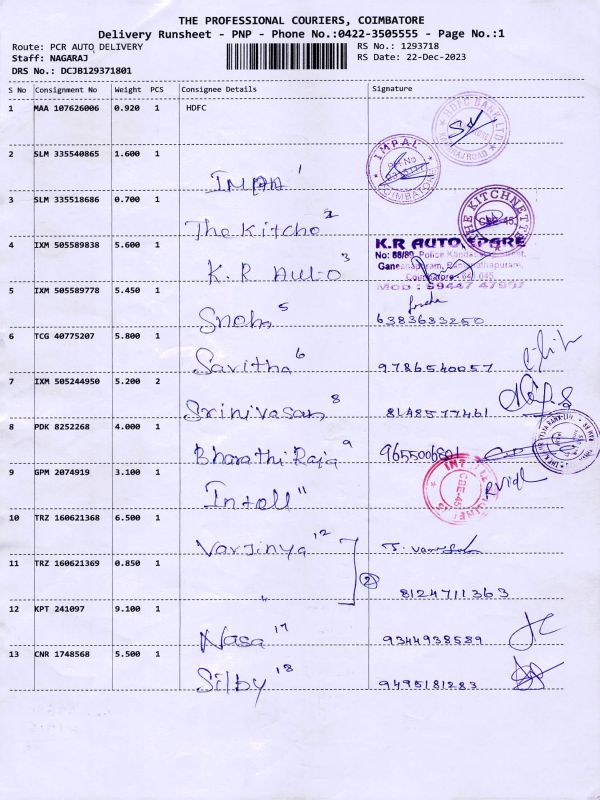 THE PROFESSIONAL COURIERS, COIMBATORE
Delivery Runsheet - PNP - Phone No.:0422-3505555 - Page No.:1
Route: PCR AUTO DELIVERY RS No.: 1293718
Staff: NAGARAJ RS Date: 22-Dec-2023
DRS No.: DCJB129371801
S No Consignment No Weight PCS Consignee Details Signature
1 MAA 107626006 0.920 1 HDFC
HDFC BANK LTD
2 SLM 335540865 1.600 1
IMPAL
COIMBATORE
1
3 SLM 335518686 0.700 1
The Kitche 2
THE KITCHNETTE
CBE-45
4 IXM 505589838 5.600 1
K.R AUTO SPARE
No: 88/89, Police Kandasamy Street,
Coimbatore - 641 045
Mob : 99447 47907
K.R Auto 3
5 IXM 505589778 5.450 1
Sneha 5 6383633250
6 TCG 40775207 5.800 1
Savitha 6 9786540057
7 IXM 505244950 5.200 2
Srinivasan 8 8148577461
8 PDK 8252268 4.000 1
Bharathi Raja 9 9655006801
9 GPM 2074919 3.100 1
Intell 11
CBE-45
10 TRZ 160621368 6.500 1
Varjinya 12
11 TRZ 160621369 0.850 1
2
" 8124711363
12 KPT 241097 9.100 1
Nasa 17 9344938589
13 CNR 1748568 5.500 1
Silby 18 9495181283